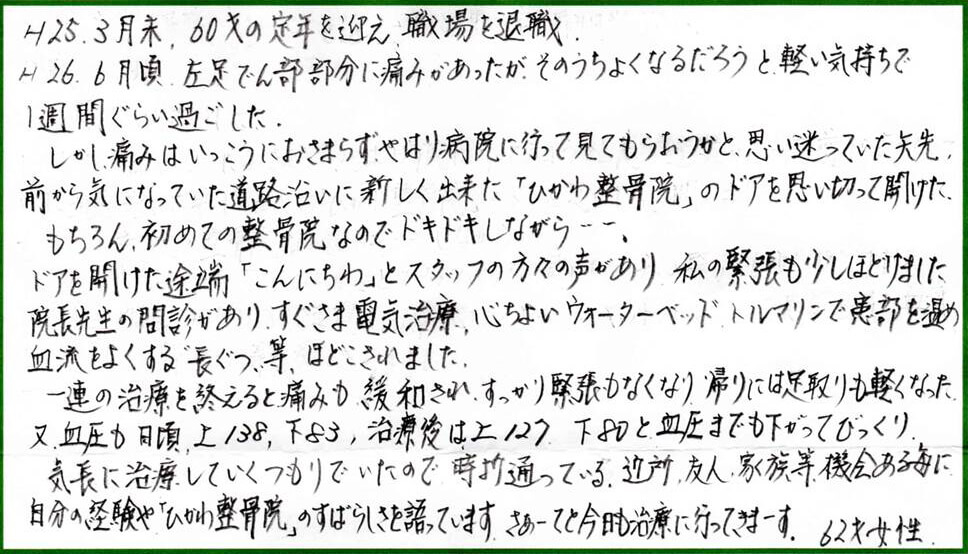 H25.3月末、60才の定年を迎え、職場を退職.
H26.6月頃、左足でん部部分に痛みがあったが、そのうちよくなるだろうと、軽い気持ちで
1週間ぐらい過ごした.
しかし、痛みはいっこうにおさまらず、やはり病院に行って見てもらおうかと、思い迷っていた矢先、
前から気になっていた道路沿いに新しく出来た「ひかわ整骨院」のドアを思い切って開けた.
もちろん、初めての整骨院なのでドキドキしながら---、
ドアを開けた途端「こんにちわ」とスタッフの方々の声があり、私の緊張も少しほどけました
院長先生の問診があり、すぐさま電気治療、心ちよいウォーターベッド、トルマリンで患部を温め
血流をよくする"長ぐつ"等、ほどこされました.
一連の治療を終えると痛みも緩和され、すっかり緊張もなくなり、帰りには足取りも軽くなった.
又、血圧も日頃、上138,下83,治療後は上127 下80と血圧までも下がってびっくり.
気長に治療していくつもりでいたので、時折通っている、近所、友人、家族等、機会ある毎に
自分の経験や「ひかわ整骨院」のすばらしさを語っています.さあーてと今日も治療に行ってきまーす. 62才女性.